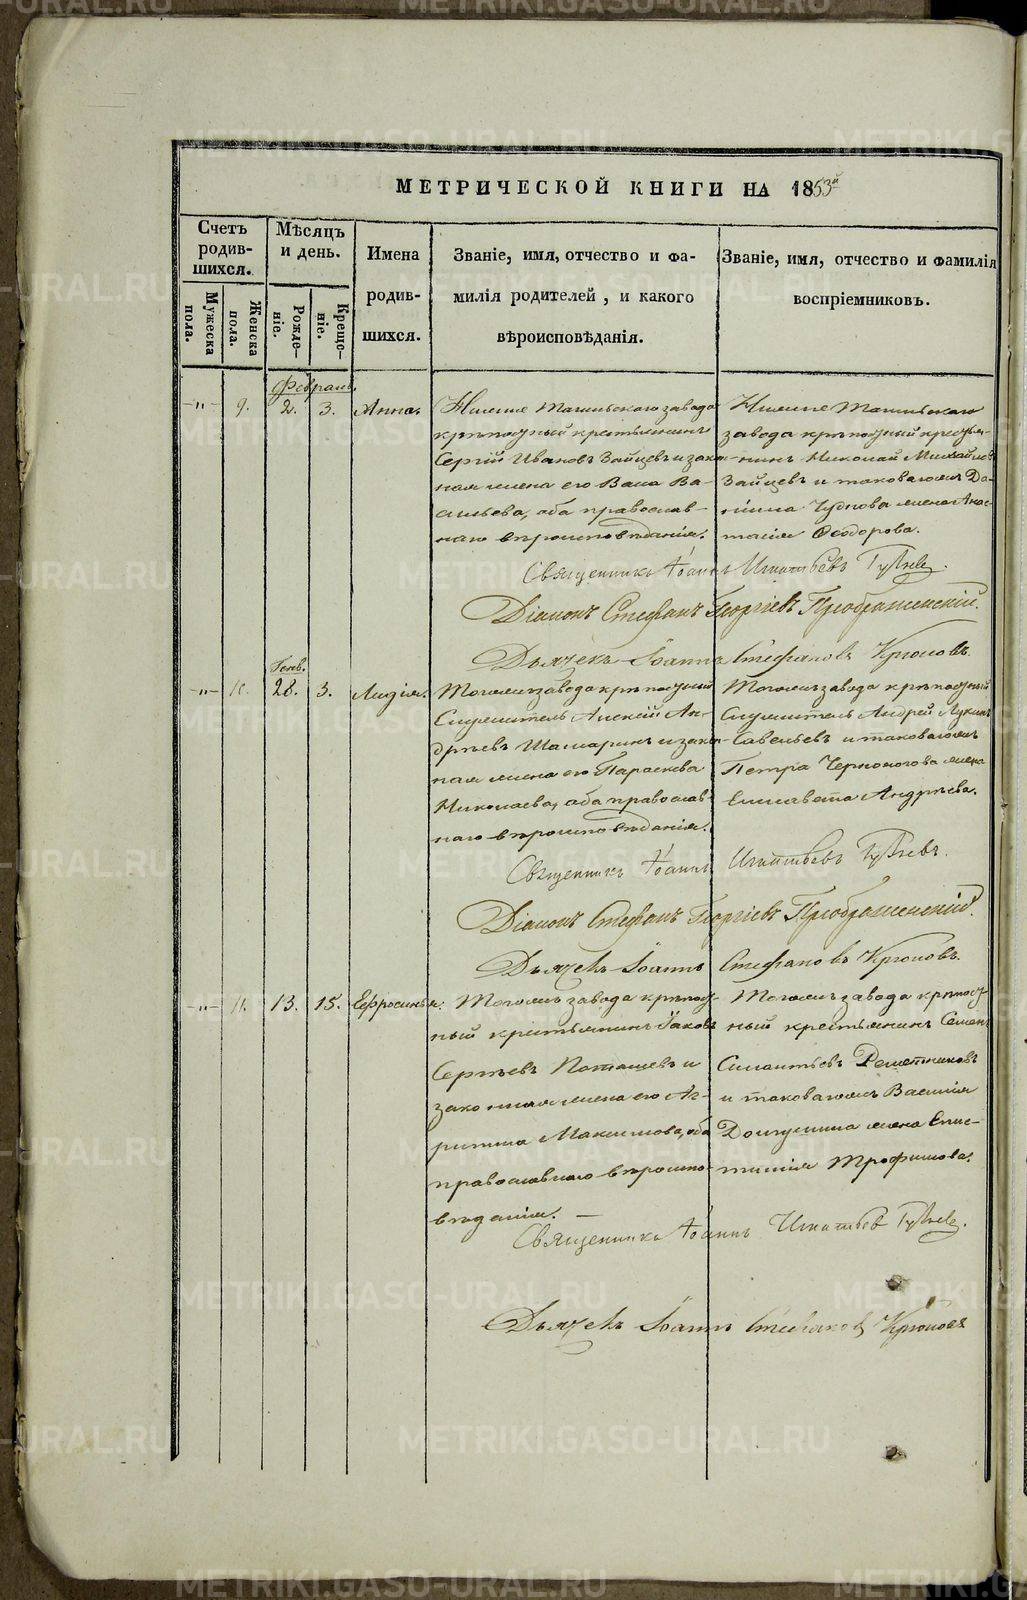 МЕТРИЧЕСКОЙ КНИГИ НА 1853й
Счетъ родив-шихся.
Мѣсяцъ и день.
Имена родив-шихся.
Званіе, имя, отчество и фа-
милія родителей, и какого
вѣроисповѣданія.
Званіе, имя, отчество и фамилія
воспріемниковъ.
Мужеска пола.
Женска пола.
Рожде-ніе.
Креще-ніе.
Февраль.
-"- 9. 2. 3. Анна.
Нижне Тагильскаго завода
крѣпостный крестьянинъ
Сергій Ивановъ Зайцевъ и зако-
ная жена его Васа Ва-
сильева, оба православ-
наго вѣроисповѣданія.
Нижне Тагильскаго
завода крѣпостный крестья-
нинъ Николай Михайловъ
Зайцевъ и таковагожъ Да-
нила Чудкова жена Анас-
тасія Ѳеодорова.
Священникъ Іоаннъ Игнатьевъ
Діаконъ Стефанъ Георгіевъ Преображенскій.
Дьячекъ Іоаннъ Стефановъ Крюковъ.
Генв.
-"- 10. 28. 3. Лидія.
Тогожъ завода крѣпостный
Служитель Алексій Ан-
дрѣевъ Шамаринъ и зако-
ная жена его Параскева
Николаева, оба православ-
наго вѣроисповѣданія.
Тогожъ завода крѣпостный
Служитель Андрей Лукинъ
Савельевъ и таковагожъ
Петра Черноногова жена
Елисавета Андрѣева.
Священникъ Іоаннъ Игнатьевъ
Діаконъ Стефанъ Георгіевъ Преображенскій.
Дьячекъ Іоаннъ Стефановъ Крюковъ.
-"- 11. 13. 15. Ефросинья.
Тогожъ завода крѣпост-
ный крестьянинъ Іаковъ
Сергѣевъ Поташевъ и
законная жена его Аг-
рипина Максимова, оба
православнаго вѣроиспо-
вѣданія.
Тогожъ завода крѣпост-
ный крестьянинъ Семенъ
Силантьевъ Решетниковъ
и таковагожъ Василія
жена Епис-
тимія Трофимова.
Священникъ Іоаннъ Игнатьевъ
Дьячекъ Іоаннъ Стефановъ Крюковъ
METRIKI.GASO-URAL.RU